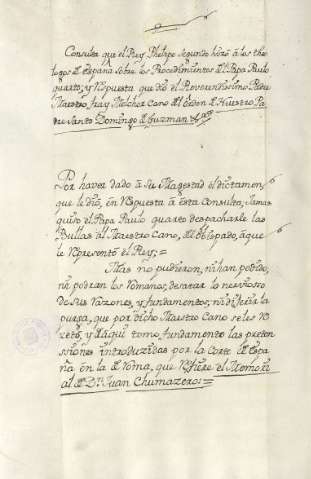 Consulta que el Rey Phelipe Segundo hizo â los theo
logos de españa sobre los Procedimientos del Papa Paulo
quarto; y Respuesta que diô el Reverendissimo Padre
Maestro fray Melchor Cano del orden de Nuestro Pa
dre Santo Domingo de Guzman
Por haver dado â Su Magestad el dictamen,
que le diô, en Respuesta â esta Consulta, Jamas
quiso el Papa Paulo quarto despacharle las
Bullas al Maestro Cano, del Obispado, â que
le Presentô el Rey;=
Mas no pudieron, ni han podido,
ni podran los Romanos, desatar lo nervioso
de sus razones, y fundamentos, ni la
purga, que por dicho Maestro Cano se les re
cetô, y de aqui tomo fundamento las preten
ssiones introduzidas por la Corte de Espa
ña en la de Roma, que refiere el Memori
al de Dn. Juan Chumazero:=